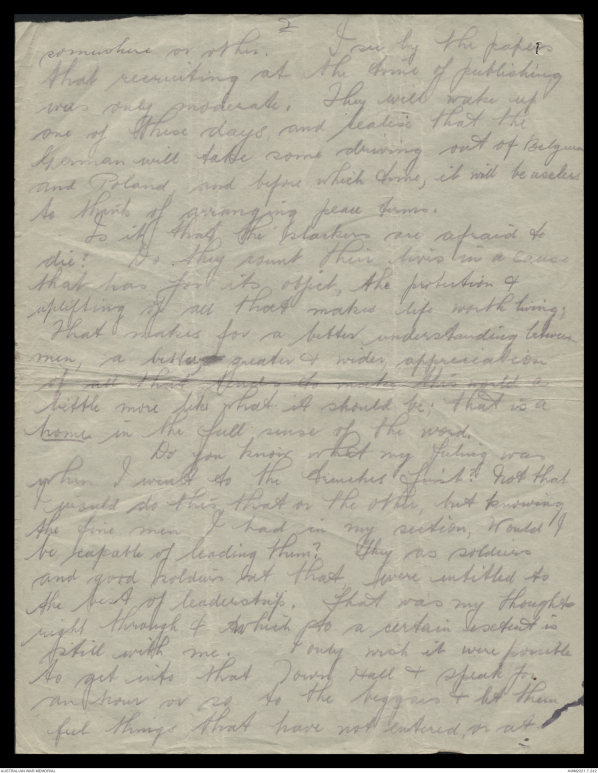 2
somewhere or other. I see by the papers
that recruiting at the time of publishing
was only moderate. They will wake up
one of these days, and realise that the
German will take some driving out of Belgium
and Poland, and before which time, it will be useless
to think of arranging peace terms.
Is it that the slackers are afraid to
die? Do they count their lives in a cause
that has for its object, the protection &
uplifting of all that makes life worth living;
That makes for a better understanding between
men, a greater & wider appreciation
of all that tends to make this world a
little more like what it should be; that is a
home in the full sense of the word.
Do you know what my feeling was
when I went to the trenches first? Not that
I would do this, that or the other, but knowing
the fine men I had in my section, Would I
be capable of leading them? They as soldiers
and good soldiers at that, were entitled to
the best of leadership. That was my thoughts
right through & which to a certain extent is
still with me. I only wish it were possible
to get into that Town Hall & speak for
an hour or so to the beggars & let them
feel things that have not entered, or at
AUSTRALIAN WAR MEMORIAL
AWM2021.7.242